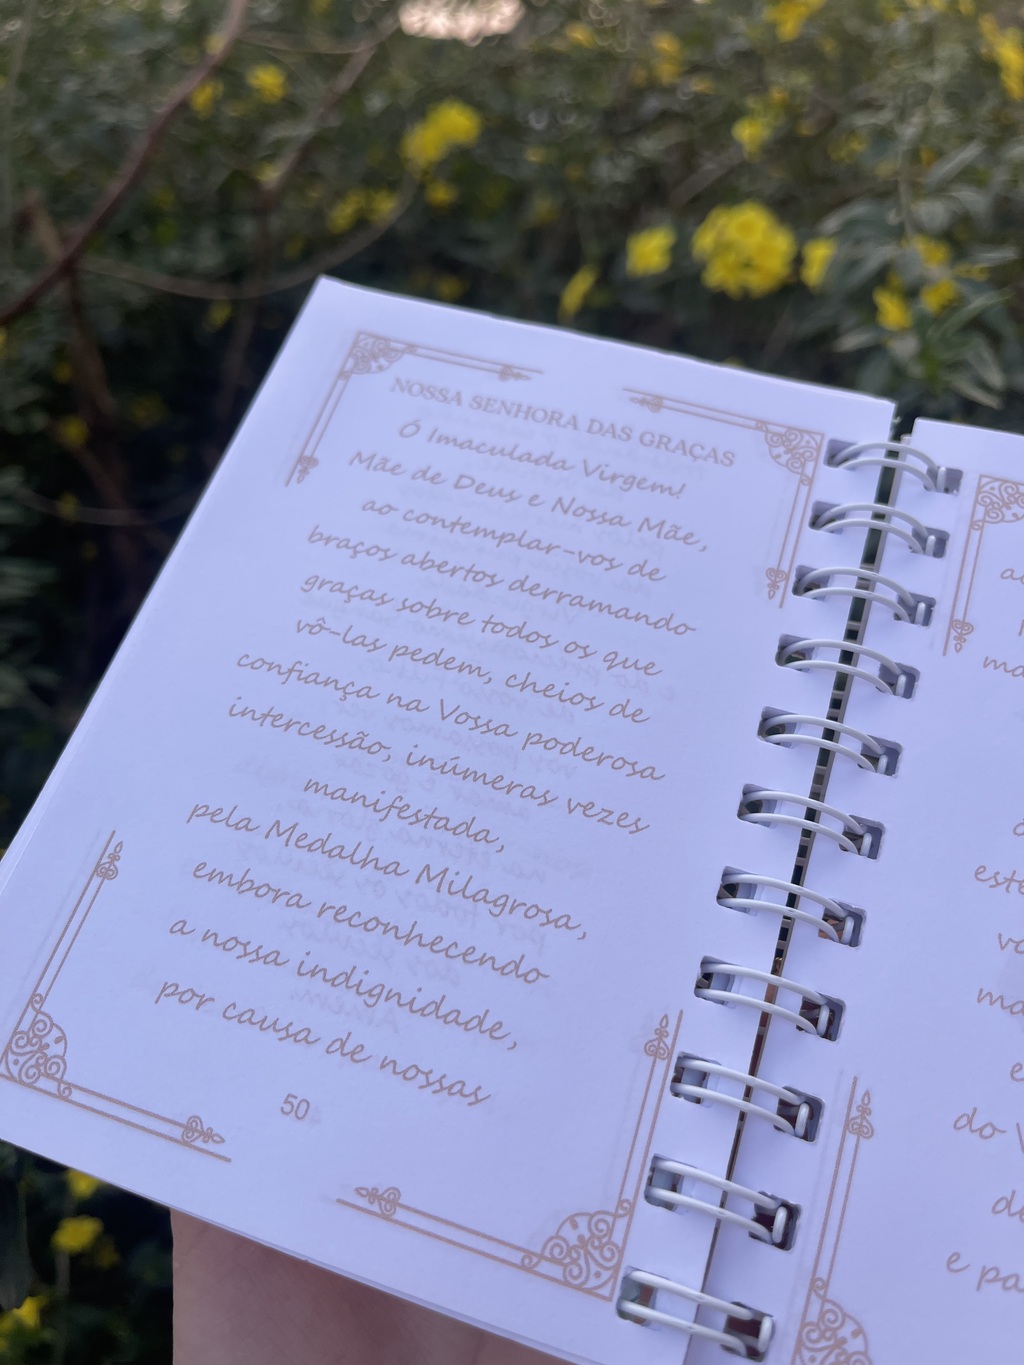 NOSSA SENHORA DAS GRAÇAS
Ó Imaculada Virgem!
Mãe de Deus e Nossa Mãe,
ao contemplar-vos de
braços abertos derramando
graças sobre todos os que
vô-las pedem, cheios de
confiança na Vossa poderosa
intercessão, inúmeras vezes
manifestada,
pela Medalha Milagrosa,
embora reconhecendo
a nossa indignidade,
por causa de nossas
50
do
e